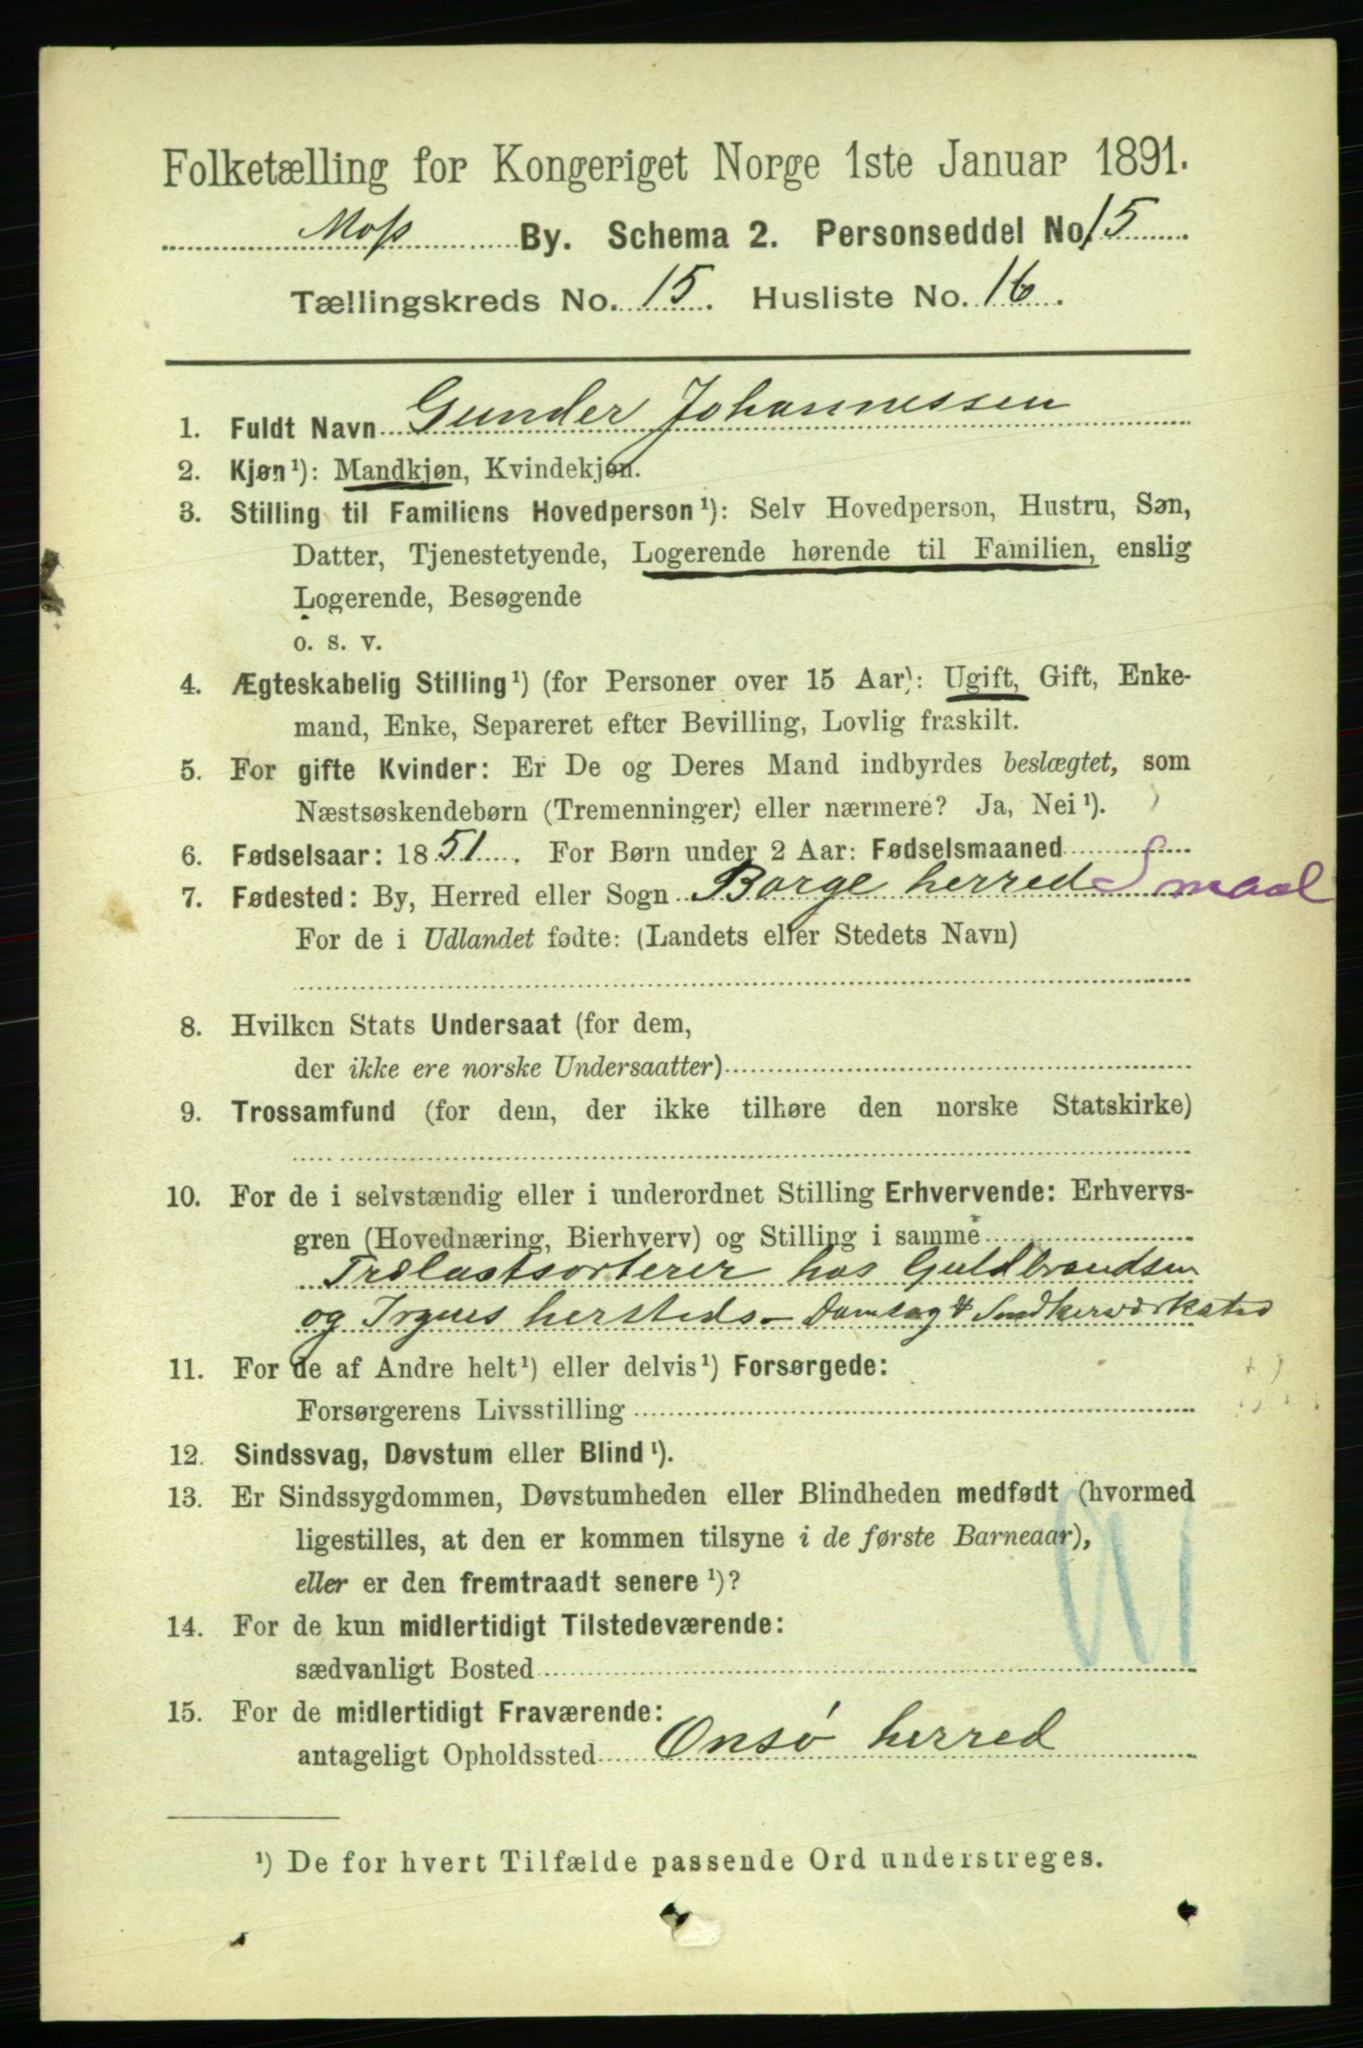 Folketælling for Kongeriget Norge 1ste Januar 1891.
Moss By. Schema 2. Personseddel No. 15
Tællingskreds No. 15. Husliste No. 16.
1. Fuldt Navn Gunder Johannessen
2. Kjøn¹): Mandkjøn, Kvindekjøn.
3. Stilling til Familiens Hovedperson¹): Selv Hovedperson, Hustru, Søn,
Datter, Tjenestetyende, Logerende hørende til Familien, enslig
Logerende, Besøgende
o. s. v.
4. Ægteskabelig Stilling¹) (for Personer over 15 Aar): Ugift, Gift, Enke-
mand, Enke, Separeret efter Bevilling, Lovlig fraskilt.
5. For gifte Kvinder: Er De og Deres Mand indbyrdes beslægtet, som
Næstsøskendebørn (Tremenninger) eller nærmere? Ja, Nei¹).
6. Fødselsaar: 1851. For Børn under 2 Aar: Fødselsmaaned
7. Fødested: By, Herred eller Sogn Borge herred Smaal
For de i Udlandet fødte: (Landets eller Stedets Navn)
8. Hvilken Stats Undersaat (for dem,
der ikke ere norske Undersaatter)
9. Trossamfund (for dem, der ikke tilhøre den norske Statskirke)
10. For de i selvstændig eller i underordnet Stilling Erhvervende: Erhvervs-
gren (Hovednæring, Bierhverv) og Stilling i samme
Trælastsorterer hos Guldbrandsen
og hersteds - Damsag & Snedkerværksted
11. For de af Andre helt¹) eller delvis¹) Forsørgede:
Forsørgerens Livsstilling
12. Sindssvag, Døvstum eller Blind¹).
13. Er Sindssygdommen, Døvstumheden eller Blindheden medfødt (hvormed
ligestilles, at den er kommen tilsyne i de første Barneaar),
eller er den fremtraadt senere¹)?
14. For de kun midlertidigt Tilstedeværende:
sædvanligt Bosted
15. For de midlertidigt Fraværende:
antageligt Opholdssted Onsø herred
¹) De for hvert Tilfælde passende Ord understreges.